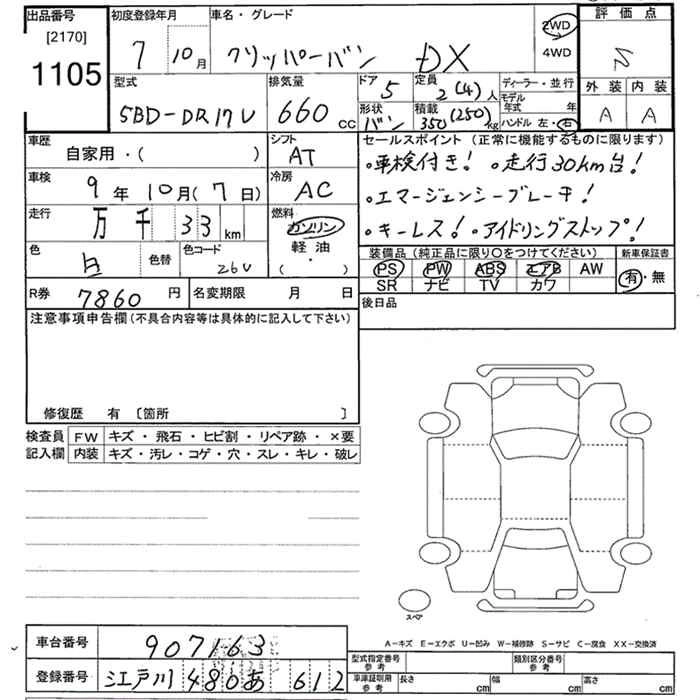 出品番号 初度登録年月 車名・グレード 2WD 評価点
[2170] 7 10月 クリッパーバン DX 4WD S
1105
型式 排気量 ドア 定員 ディーラー・並行 外装 内装
5BD-DR17V 660 CC 5 2(4)人 モデル年式 年 A A
形状 バン 積載 350(250)kg ハンドル 左・右
車歴 シフト セールスポイント (正常に機能するものに限ります)
自家用・( ) AT •車検付き! •走行30km台!
車検 冷房 •エマージェンシーブレーキ!
9年10月(7日) AC •キーレス! •アイドリングストップ!
走行 燃料
万 千 33 km ガソリン
色 色替 色コード 軽油 装備品 (純正品に限り○をつけてください) 新車保証書
白 26U ( ・ ) PS PW ABS エアB AW 有・無
SR ナビ TV カワ
R券 7860円 名変期限 月 日 後日品
注意事項申告欄 (不具合内容等は具体的に記入して下さい)
修復歴 有 〔箇所 〕
検査員 FW キズ・飛石・ヒビ割・リペア跡・×要
記入欄 内装 キズ・汚レ・コゲ・穴・スレ・キレ・破レ
スペア
A-キズ E-エクボ U-凹み W-補修跡 S-サビ C-腐食 XX-交換済
車台番号 907163 型式指定番号 参考 類別区分番号 参考
登録番号 江戸川 480 あ 612 車庫証明用 参考 長さ cm 幅 cm 高さ cm